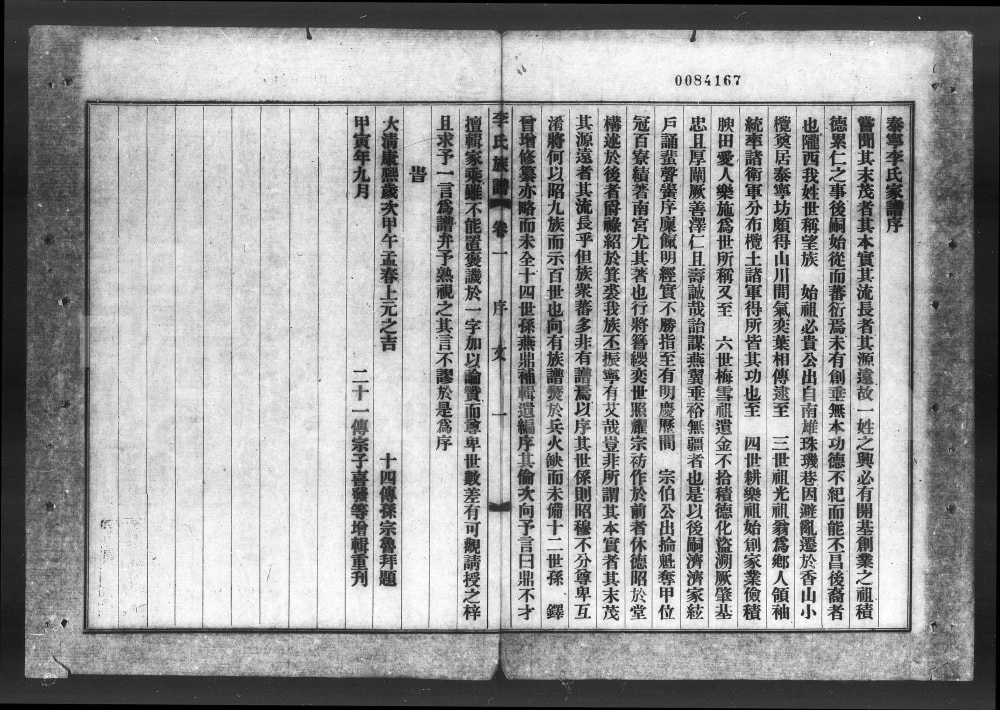 0084167
泰寧李氏家譜序
嘗聞其末茂者其本實其流長者其源遠故一姓之興必有開基創業之祖積
德累仁之事後嗣始從而蕃衍焉未有創垂無本功德不紀而能不昌後裔者
也隴西我姓世稱望族 始祖必貴公出自南雄珠璣巷因避亂遷於香山小
欖奠居泰寧坊頗得山川間氣奕葉相傳逮至 三世祖光祖翁為鄉人領袖
統率諸衛軍分布欖土諸軍得所皆其功也至 四世耕樂祖始創家業儉積
腴田愛人樂施為世所稱又至 六世梅雪祖遺金不拾積德化盜溯厥肇基
忠且厚閘厥善澤仁且壽誠哉詒謀燕翼垂裕無疆者也是以後嗣濟濟家絃
戶誦蜚聲黌序廩餼明經實不勝指至有明慶曆間 宗伯公出掄魁奪甲位
冠百寮績著南宮尤其著也行將簪纓奕世照耀宗祊作於前者休德昭於堂
構述於後者爵祿紹於箕裘我族丕振寧有艾哉豈非所謂其本實者其末茂
其源遠者其流長乎但族眾蕃多非有譜焉以序其世係則昭穆不分尊卑互
淆將何以昭九族而示百世也向有族譜燬於兵火缺而未備十二世孫 鐸
曾增修纂亦略而未全十四世孫燕鼎補輯遺編序其倫次向予言曰鼎不才
李氏族譜 卷一 序文 一
擅輯家乘雖不能置褒譏於一字加以論贊而尊卑世數差有可觀請授之梓
且求予一言為譜弁予熟視之其言不謬於是為序
旹
大清康熙歲次甲午孟春上元之吉 十四傳孫宗魯拜題
甲寅年九月 二十一傳宗子喜發等增輯重刊